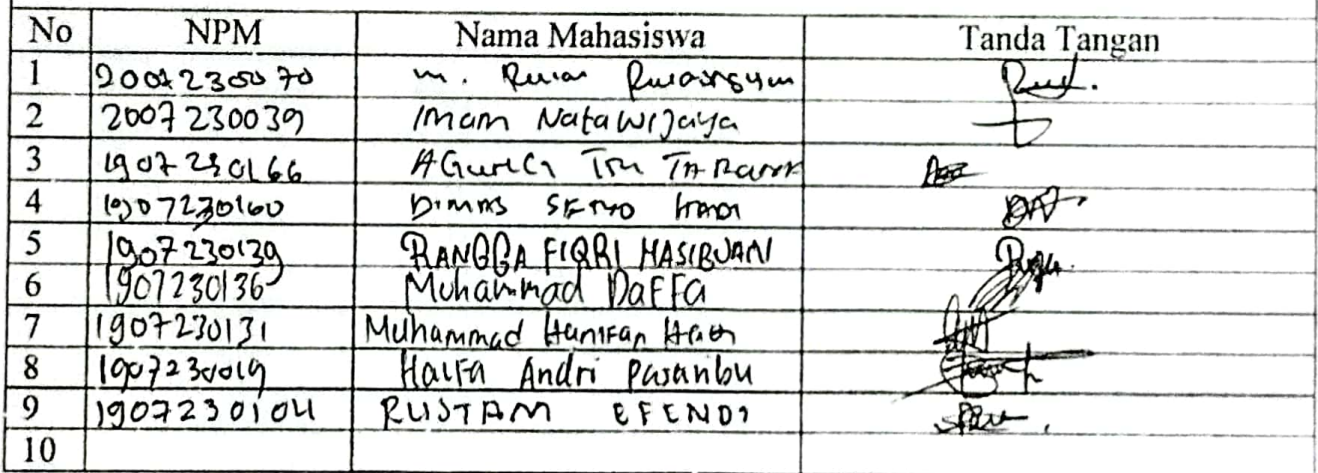 No NPM Nama Mahasiswa Tanda Tangan
1 2007230070 m.
2 2007230039 Imam Natawijaya
3 1907230166 Tri
4 1907230160 Dimas
5 1907230139 RANGGA FIQRI HASIBUAN
6 1907230136 Muhammad Daffa
7 1907230131 Muhammad Hanifan
8 1907230019 Halfa Andri Pasaribu
9 1907230104 RUSTAM EFENDI
10